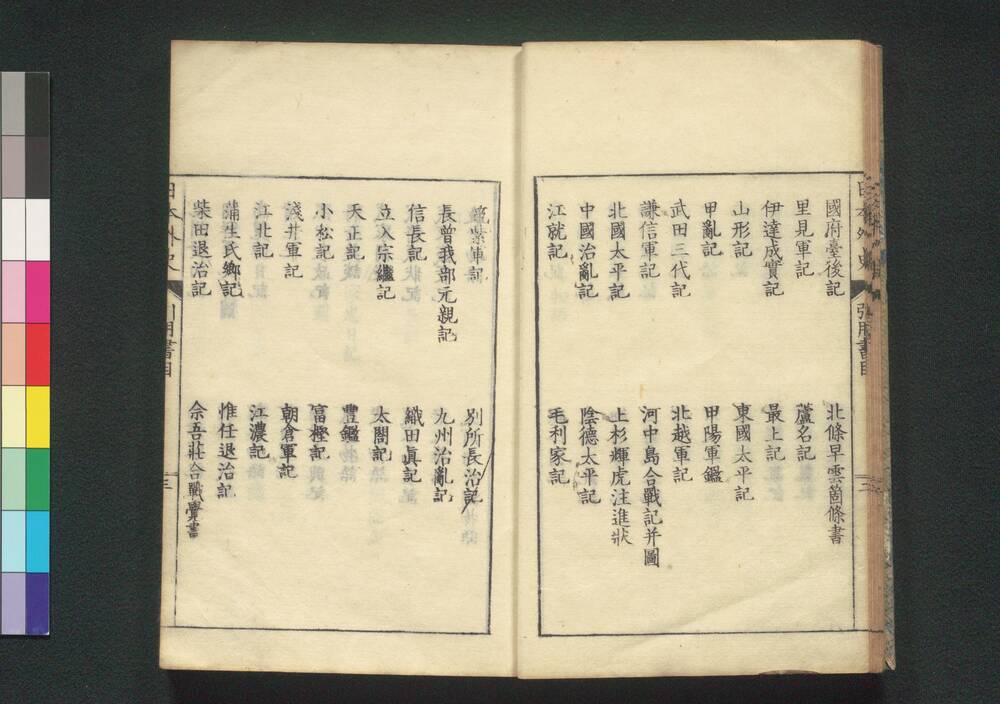 國府臺後記
北條早雲箇條書
里見軍記
蘆名記
伊達成實記
最上記
山形記
東國太平記
甲亂記
甲陽軍鑑
武田三代記
北越軍記
謙信軍記
河中島合戰記并圖
北國太平記
上杉輝虎注進狀
中國治亂記
陰德太平記
江就記
毛利家記
筑紫軍記
別所長治記
長曾我部元親記
九州治亂記
信長記
織田眞記
立入宗繼記
太閤記
天正記
豐鑑
小松記
富樫記
淺井軍記
朝倉軍記
江北記
江濃記
蒲生氏鄉記
惟任退治記
柴田退治記
佘吾莊合戰覺書
日本外史
引用書目
三